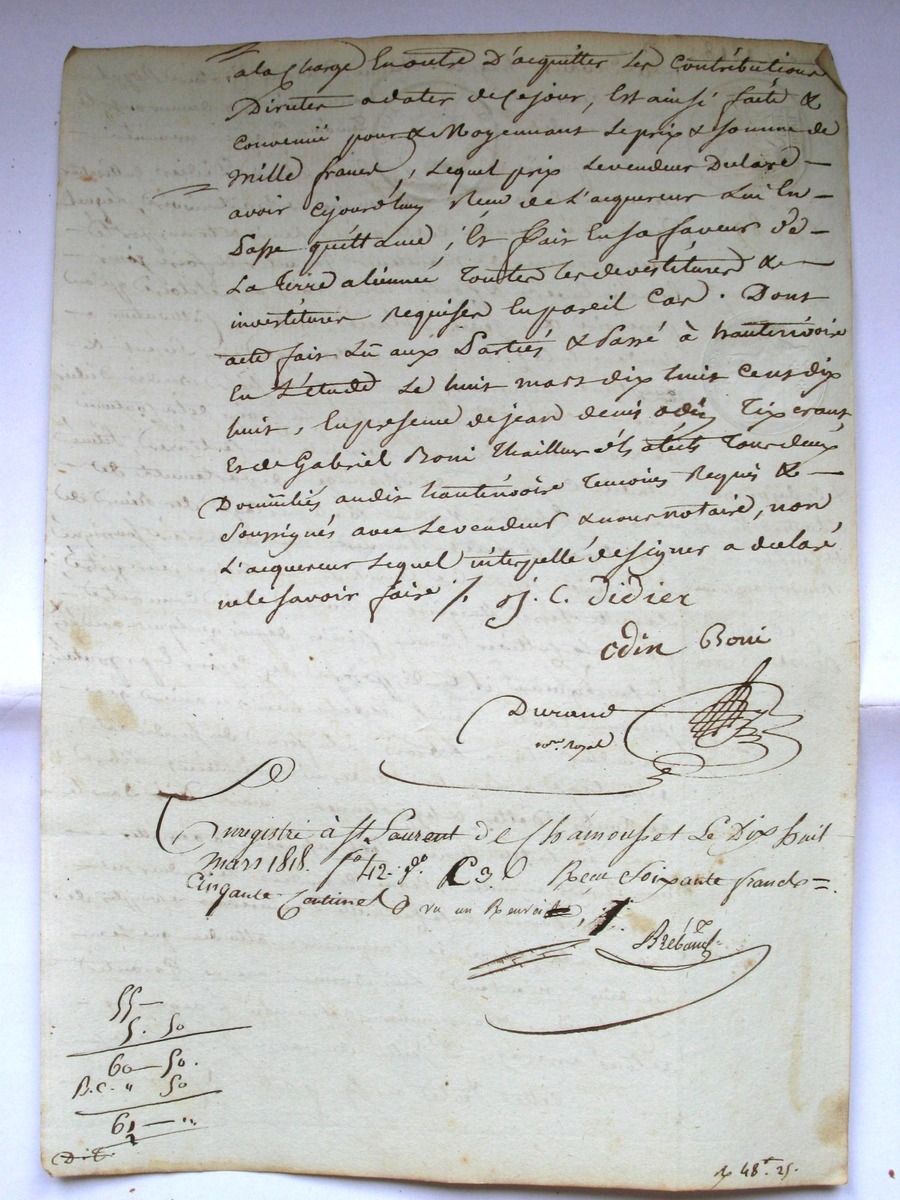 a la Charge En outre D'acquitter les Contributions
Directes a dater de Ce jour, Est ainsi faite &
Convenüe pour & Moyennant Le prix & Somme de
Mille francs, Lequel prix Le vendeur Declare
avoir Cejourd'huy Recu de L'acquereur Lui En
Passe quittance, Et fait En sa faveur de
La terre alienneé Toutes les devestitures &
investitures Requises En pareil Cas. Dont
acte fait Lû aux Parties & Passé à hauterivoire
En L'étude Le huit mars dix huit Cent dix
huit, En presence de jean denis odin Tixerant
Et de Gabriel Boni Tailleur d'habits Tous deux
Domiciliés audit hauterivoire Temoins Requis &
Soussignés avec Le vendeur & nous notaire, non
L'acquereur Lequel interpellé de signer a declaré
ne le Savoir faire ./.
j. C. Didier
odin Boni
Durand
Nre Royal
Enregistré à St Laurent de Chamousset Le Dix huit
mars 1818. fo 42 Vo C 3. Recu Soixante francs
Cinquante Centimes
Brébant
55 —
5. 50
60 — 50.
B.C. " 50
61 — "
48 f. 25